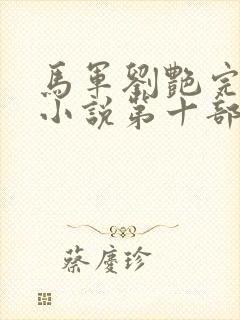 馬軍劉艷完
小說第十部
蔡慶珍